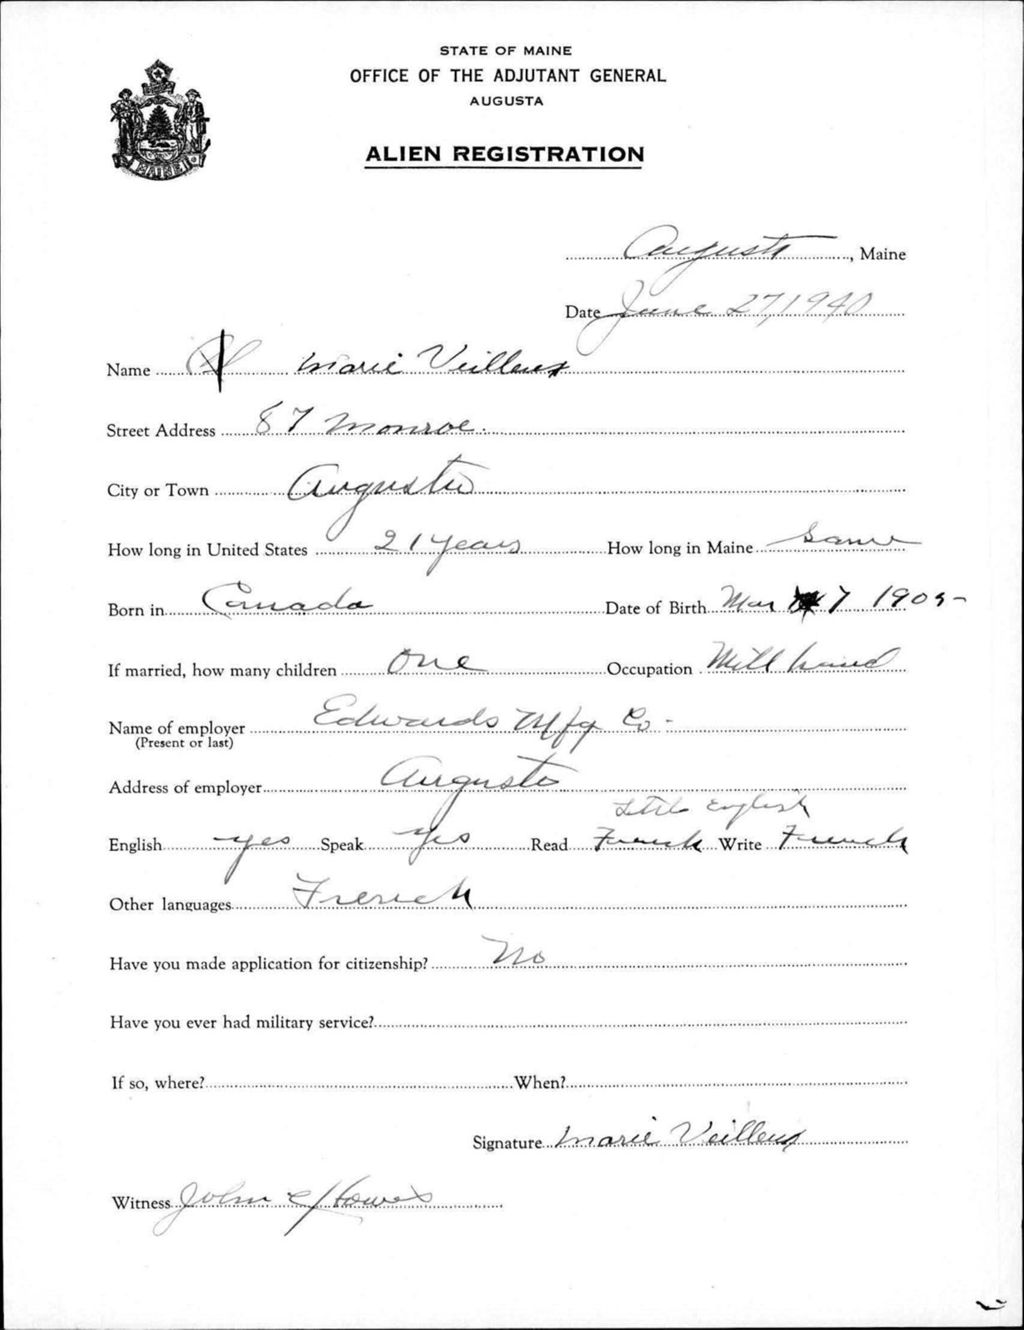 STATE OF MAINE
OFFICE OF THE ADJUTANT GENERAL
AUGUSTA
ALIEN REGISTRATION
Augusta, Maine
Date June 27, 1940
Name Marie Veilleux
Street Address 87 Monroe.
City or Town Augusta
How long in United States 21 years How long in Maine Same
Born in Canada Date of Birth Mar 7 1905
If married, how many children One Occupation Mill hand
Name of employer Edwards Mfg Co.
(Present or last)
Address of employer Augusta
Little English
English yes Speak yes Read French Write French
Other languages French
Have you made application for citizenship? No
Have you ever had military service?
If so, where? When?
Signature Marie Veilleux
Witness John Howes
MAINE